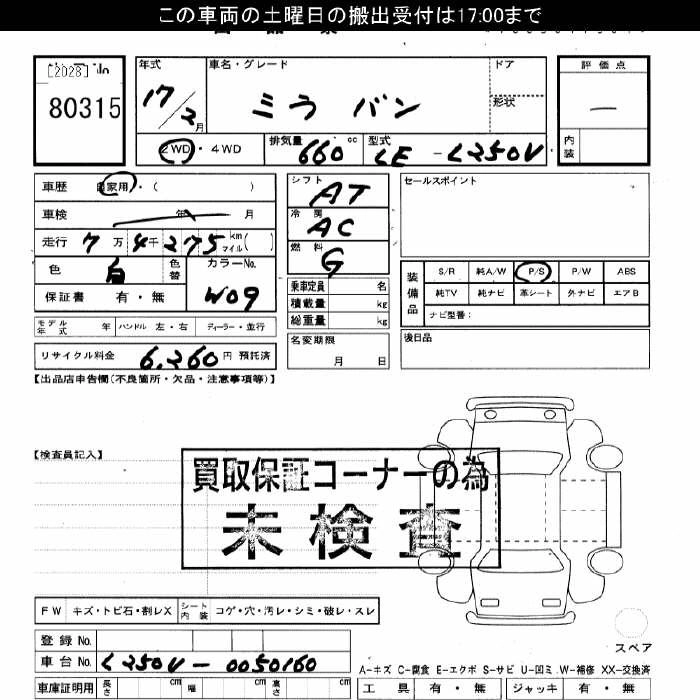 この車両の土曜日の搬出受付は17:00まで
[2028]
80315
年式 車名・グレード ドア 評価点
17/2月 ミラ バン 形状 —
2WD・4WD 排気量 660 cc 型式 LE-L250V 内装
車歴 自家用・( )
車検 年 月
走行 7万4千275 km マイル ( )
色 白 色替 カラーNo. W09
保証書 有・無
シフト AT
冷房 AC
燃料 G
乗車定員 名
積載量 kg
総重量 kg
セールスポイント
装備品 S/R 純A/W P/S P/W ABS
純TV 純ナビ 革シート 外ナビ エアB
ナビ型番:
モデル年式 年 ハンドル 左・右 ディーラー・並行
名変期限 月 日
後日品
リサイクル料金 6,260 円 預託済
【出品店申告欄(不良箇所・欠品・注意事項等)】
【検査員記入】
買取保証コーナーの為
未検査
FW キズ・トビ石・割レX シート内装 コゲ・穴・汚レ・シミ・破レ・スレ
スペア
登録No.
車台No. L250V-0050160
A-キズ C-腐食 E-エクボ S-サビ U-凹ミ W-補修 XX-交換済
車庫証明用 長さ cm 幅 cm 高さ cm 工具 有・無 ジャッキ 有・無